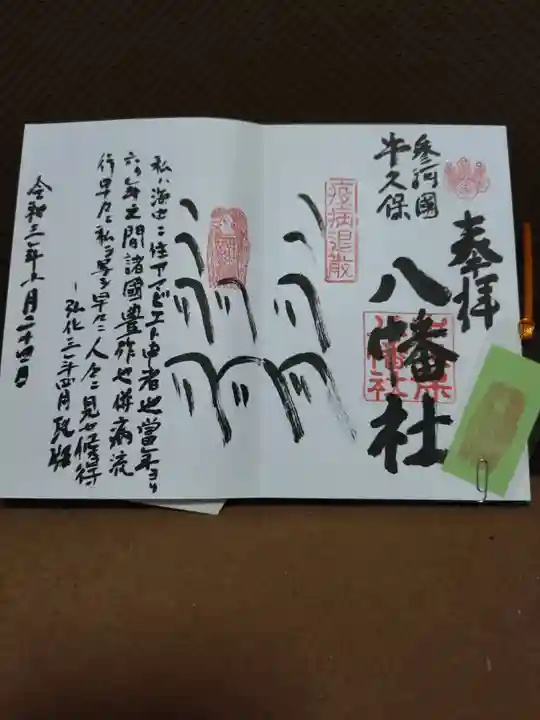 奉拝
参河國
牛久保
八幡社
疫病退散
私ハ海中ニ住アマビエト申者也當年より
六ケ年之間諸國豊作也併病流
行早々私ヲ写シ早々ニ人々ニ見セ候得
弘化三年四月
令和三年 月二十四日